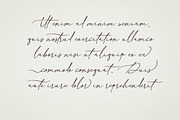 Ut enim ad minim veniam,
quis nostrud exercitation ullamco
laboris nisi ut aliquip ex ea
commodo consequat. Duis
aute irure dolor in reprehenderit